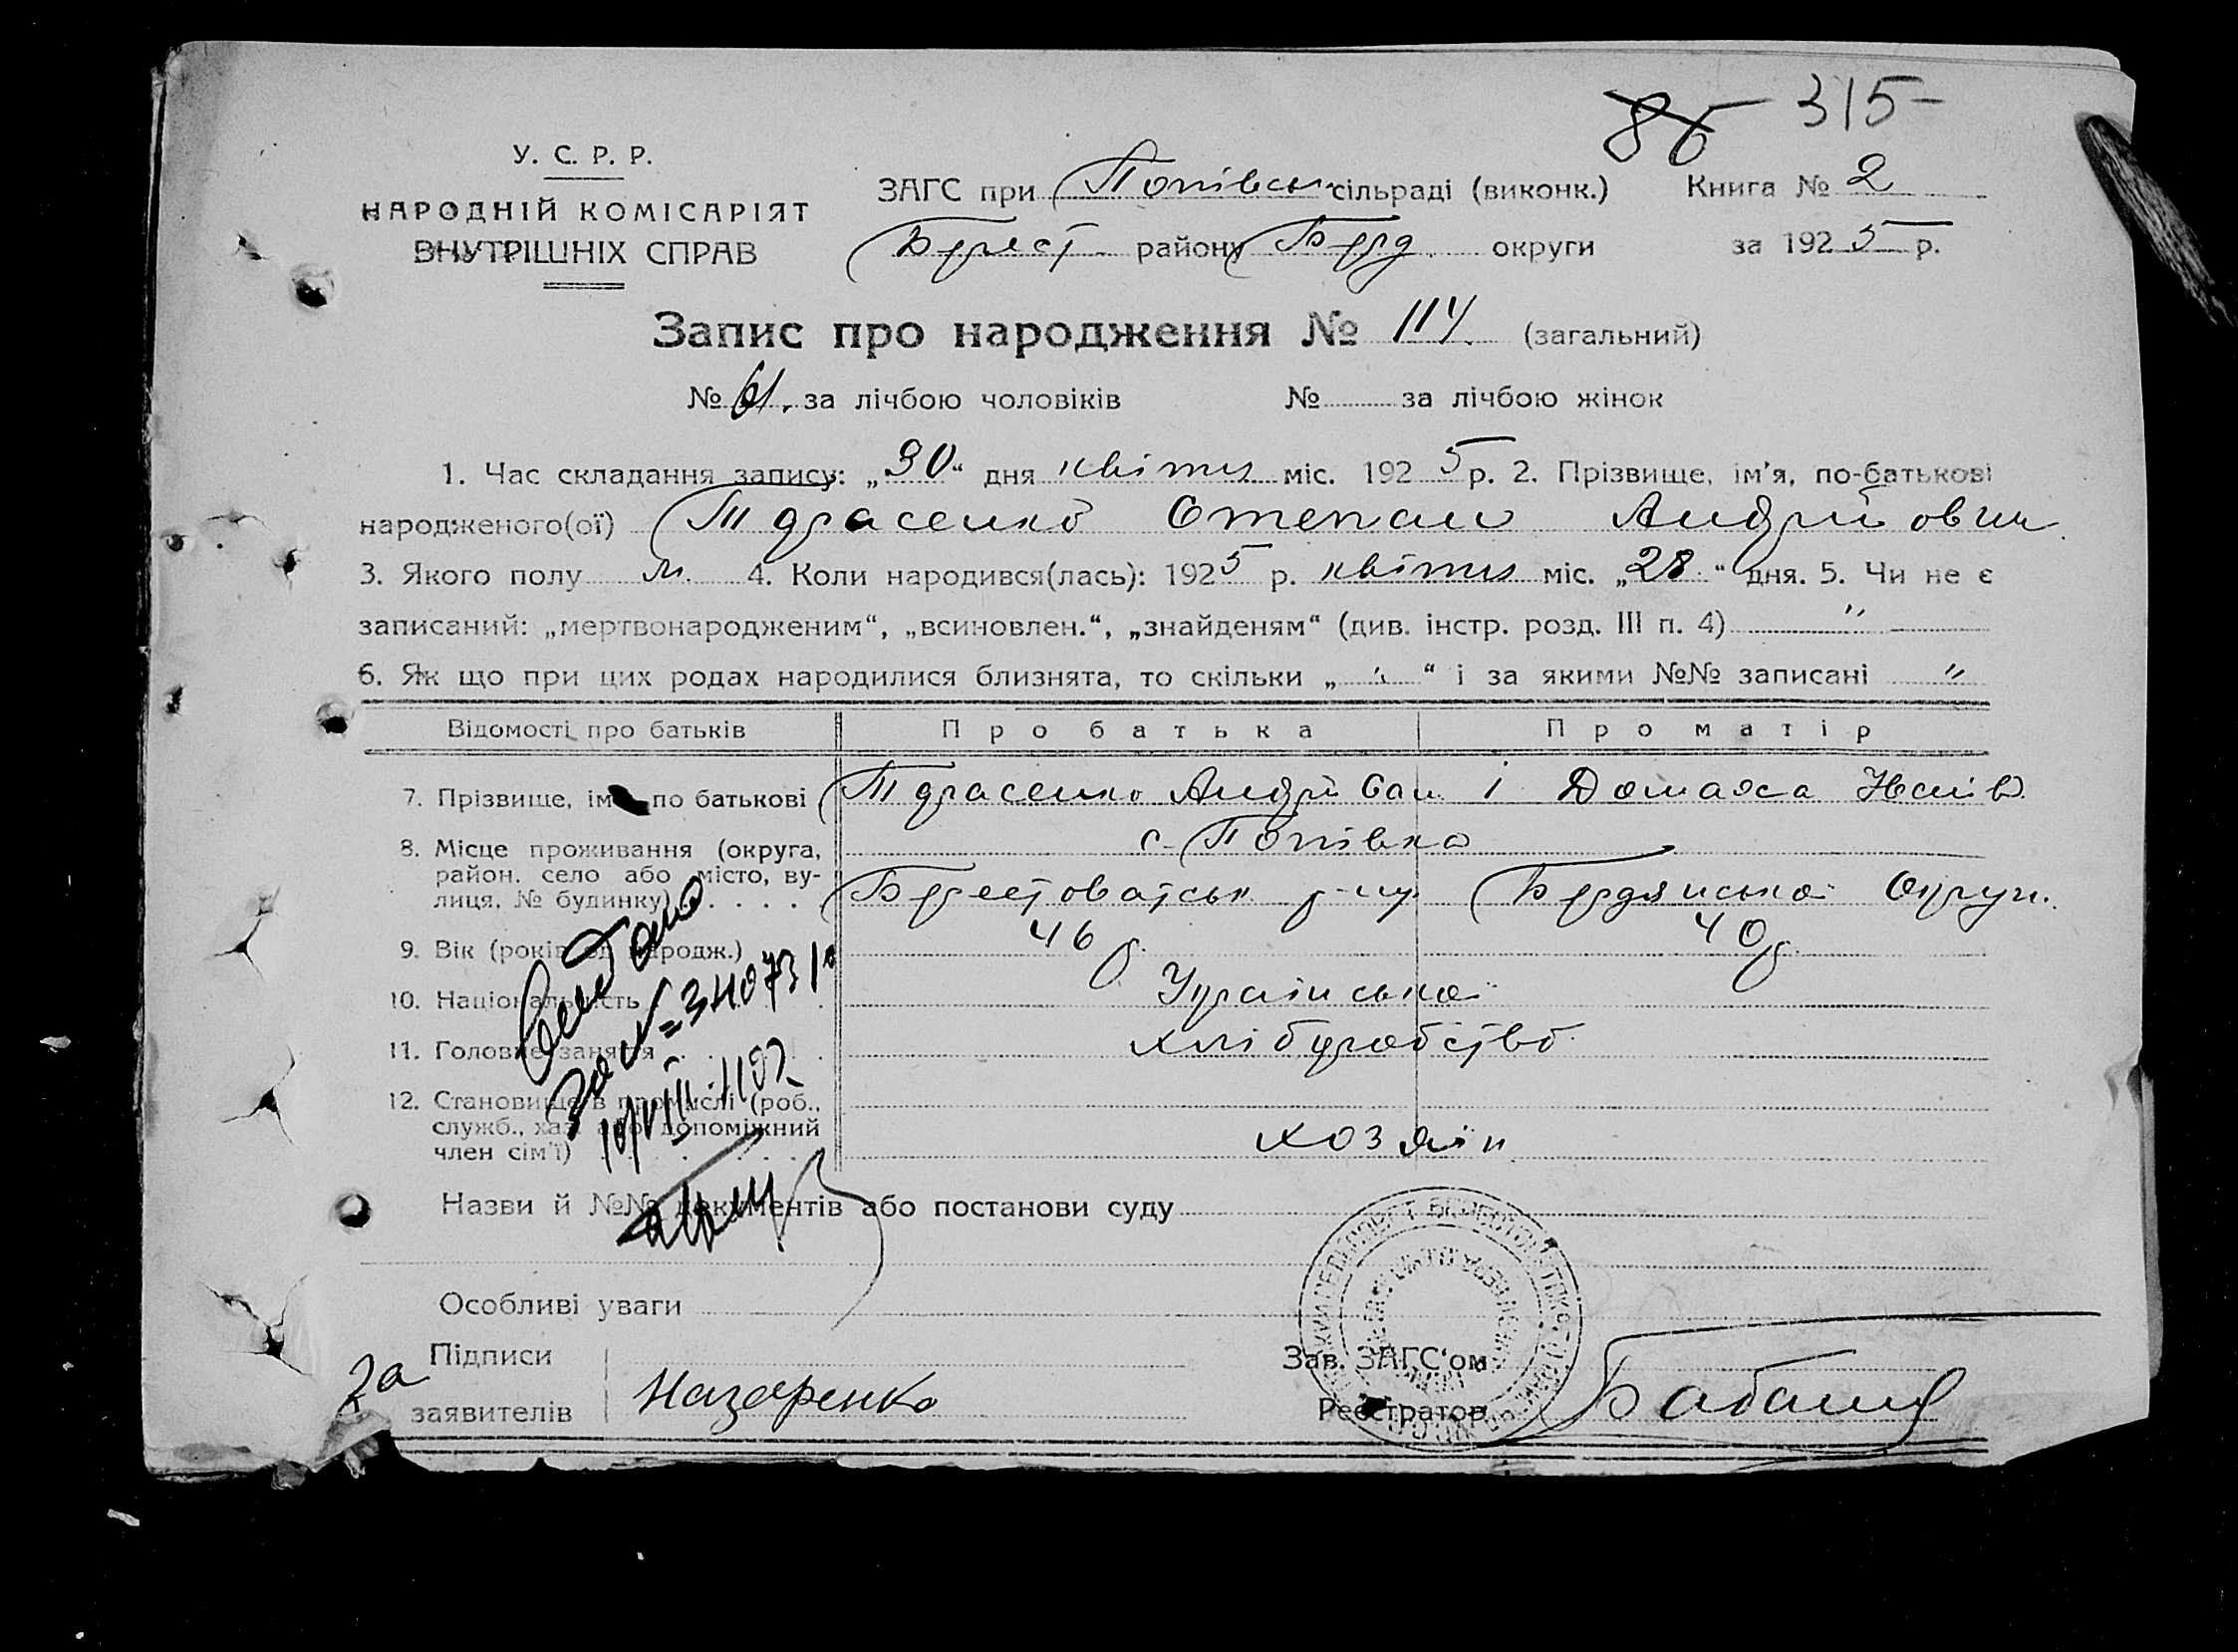 315
У. С. Р. Р.
НАРОДНІЙ КОМІСАРІЯТ
ВНУТРІШНІХ СПРАВ
ЗАГС при Попівськ сільраді (виконк.) Книга № 2
Берест району Берд. округи за 1925 р.
Запис про народження № 114. (загальний)
№ 61. за лічбою чоловіків № за лічбою жінок
1. Час складання запису: „30“ дня квітня міс. 1925 р. 2. Прізвище, ім'я, по-батькові
народженого(ої) Тарасенко Степан Андрійович
3. Якого полу м. 4. Коли народився(лась): 1925 р. квітня міс. „28“ дня. 5. Чи не є
записаний: „мертвонародженим“, „всиновлен.“, „знайденям“ (див. інстр. розд. III п. 4) "
6. Як що при цих родах народилися близнята, то скільки „ " “ і за якими №№ записані "
Відомості про батьків Про батька Про матір
7. Прізвище, ім по батькові Тарасенко Андрій і Домаха Іванів.
8. Місце проживання (округа,
район, село або місто, ву-
лиця, № будинку) . . . .
с. Попівка
Берестоватськ. р-ну Бердянської Округи.
9. Вік (років від народж.) 46 р. 40 р.
10. Національність Українська
11. Головне заняття хліборобство
12. Становище в промислі (роб.,
служб., хаз. або допоміжний
член сім'ї) хозяїн
10/VIII
Назви й №№ документів або постанови суду
Особливі уваги
Підписи
заявителів
Назаренко
Зав. ЗАГС'ом
Реєстратор
2а